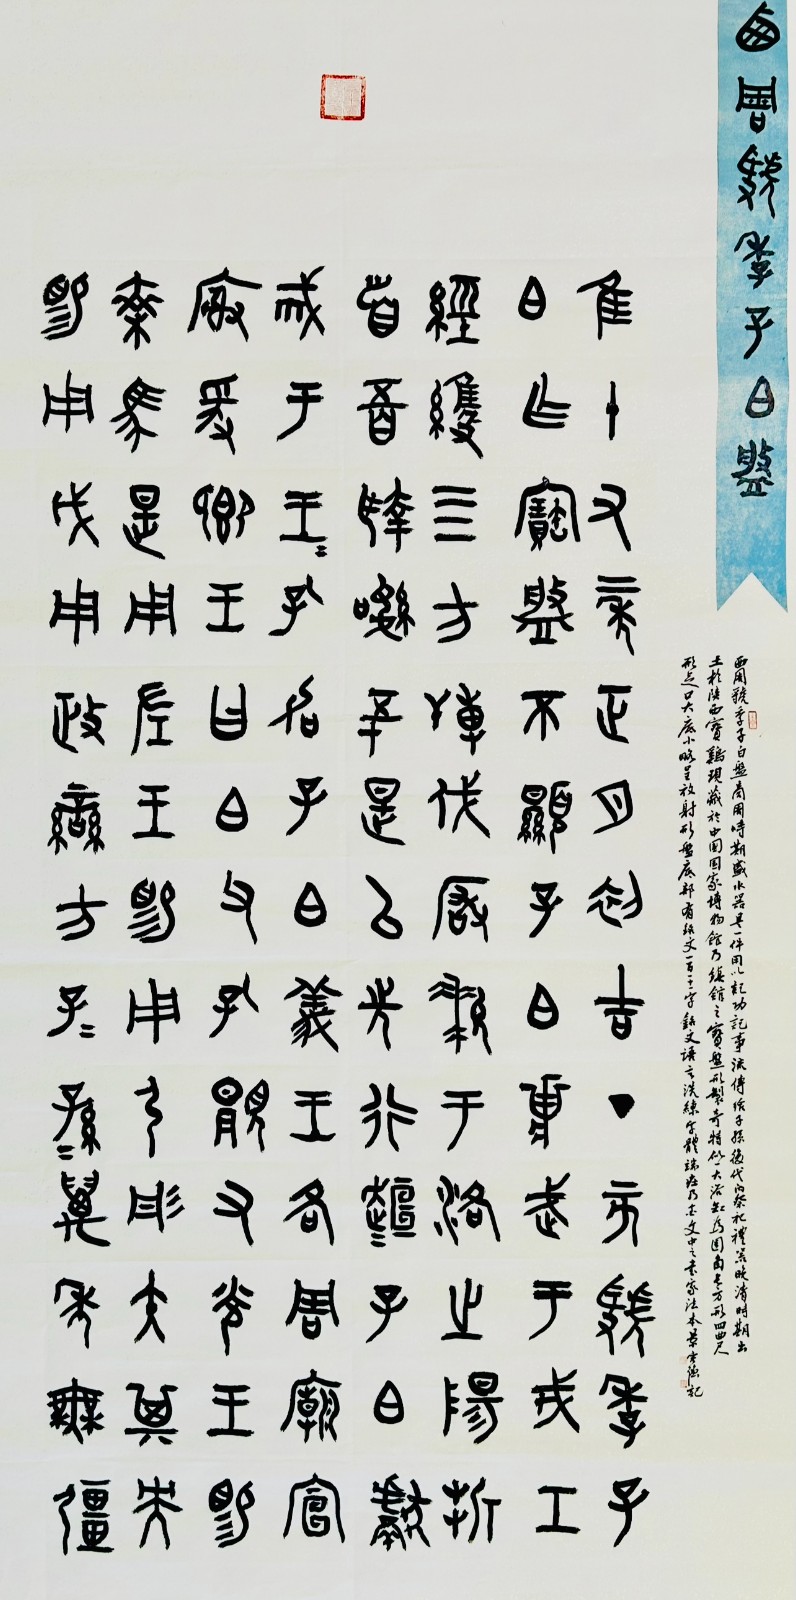 西周虢季子白盤
隹十又二年正月初吉丁亥虢季子
白乍寶盤不顯子白壯武于戎工
經維四方搏伐玁狁于洛之陽折
首五百執訊五十是以先行桓桓子白獻
戒于王王孔加子白義王各周廟宣
廚爰卿王曰白父孔顯又光王睗
乘馬是用左王睗用弓彤矢其央
睗用戉用政蠻方子子孫孫萬年無疆
西周虢季子白盤商周時期盛水器具一件用以紀功記事流傳給子孫後代內祭祀禮器晚清時期出
土於陝西寶鷄現藏於中國國家博物館乃鎮館之寶盤形製奇特似一大浴缸為圓角長方形四曲尺
形足口大底小略呈放射形盤底部有銘文一百十一字銘文語言洗練字體端莊乃金文中之書家法本景記